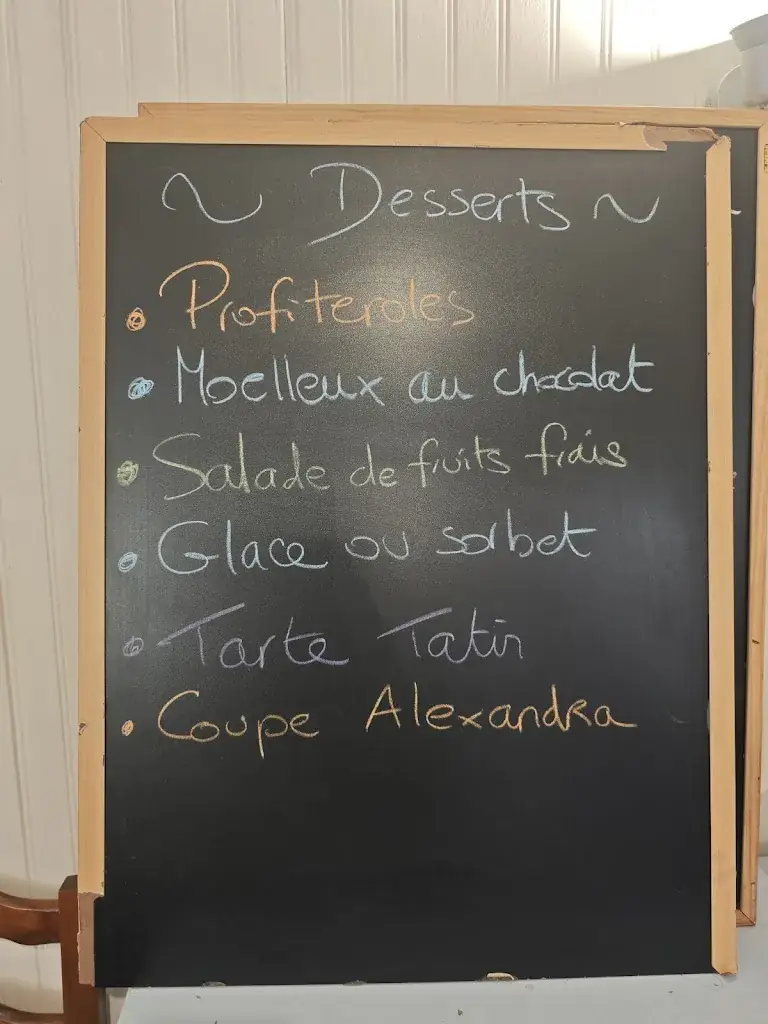 ~ Desserts ~
• Profiteroles
• Moelleux au chocolat
• Salade de fruits frais
• Glace ou sorbet
• Tarte Tatin
• Coupe Alexandra